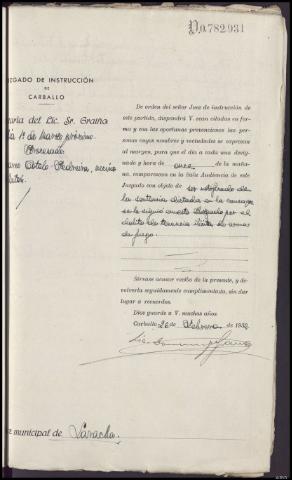 D.0.782.931
ZGADO DE INSTRUCCIÓN
DE
CARBALLO
aría del Lic. Sr. Graiño
ía 11 de Marzo próximo
Procesado
Cotelo
De orden del señor Juez de instrucción de
este partido, dispondrá V. sean citadas en for-
ma y con las oportunas prevenciones las per-
sonas cuyos nombres y vecindades se expresan
al margen, para que el día a cada una desig-
nado y hora de once de la maña-
na, comparezcan en la Sala Audiencia de este
Juzgado con objeto de ser notificado de
la sentencia dictada en la causa que
se le siguió en este Juzgado por el
delito de tenencia ilícita de armas
de fuego.
Sírvase acusar recibo de la presente, y de-
volverla seguidamente cumplimentada, sin dar
lugar a recuerdos.
Dios guarde a V. muchos años.
Carballo 26 de Febrero de 193
z municipal de Laracha.